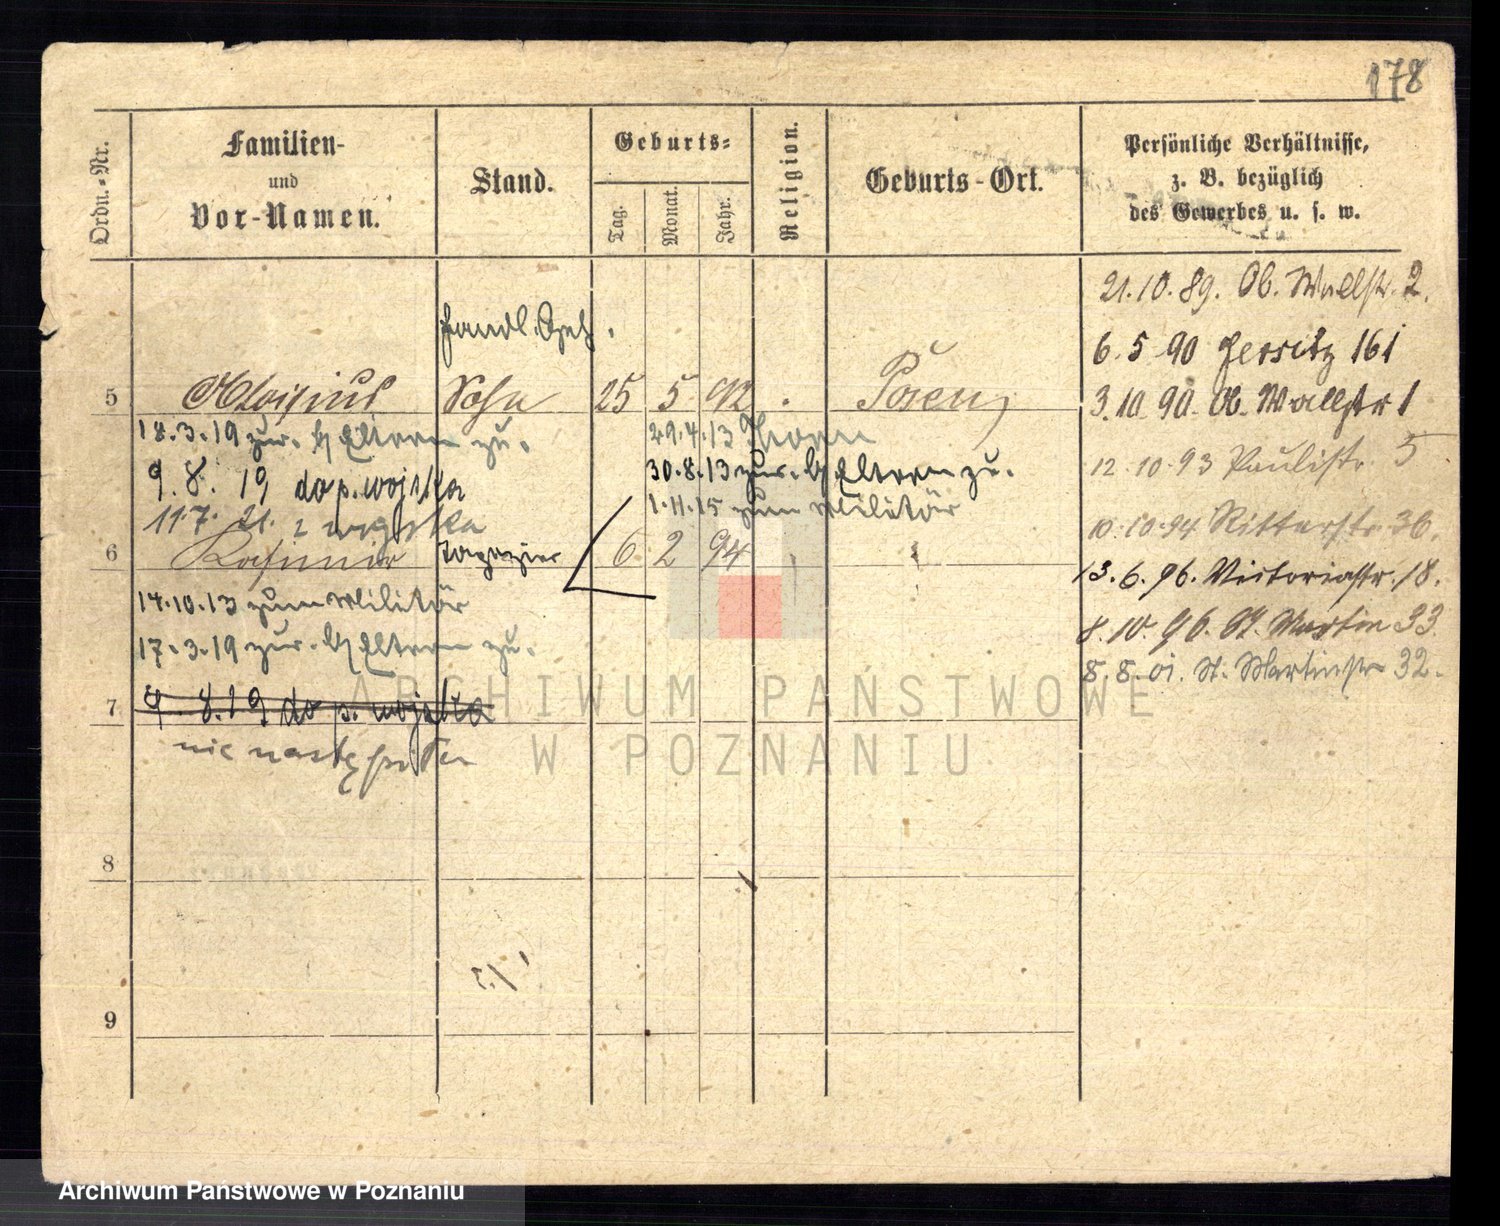 178
Ordn.-Nr.
Familien-
und
Vor-Namen.
Stand.
Geburts-
Tag.
Monat.
Jahr.
Religion.
Geburts-Ort.
Persönliche Verhältnisse,
z. B. bezüglich
des Gewerbes u. s. w.
21.10.89. Ob. Wallstr. 2.
6.5.90 Jersitz 161
3.10.90. Ob. Wallstr 1
12.10.93 Paulistr. 5
10.10.94 Ritterstr. 36.
13.6.96. Victoriastr. 18.
8.10.96. St. Martin 33
8.8.01. St. Martinstr 32.
Handl. Geh.
5 Aloisius Sohn 25 5 92 Posen
18.3.19 zur. v Eltern zu.
29.4.13 Thorn
9.8.19 do p. wojska
30.8.13 zur. v Eltern zu.
11.7.21. z wojska
1.11.15 zum Militär
6 Kasimir Tapezier 6 2 94
14.10.13 zum Militär
17.3.19 zur. v Eltern zu.
7 9.8.19 do p. wojska
nie nastąpiło
8
9
ARCHIWUM PAŃSTWOWE
W POZNANIU
Archiwum Państwowe w Poznaniu